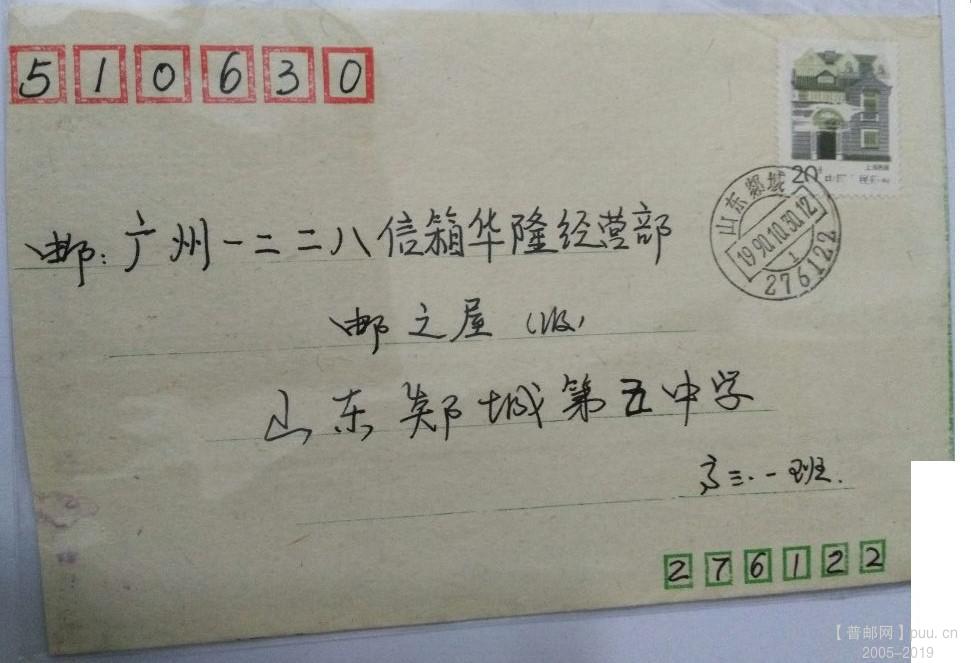 510630
20
山东郯城
1990.10.30.12
1
276122
邮:广州一二二八信箱华隆经营部
邮之屋(收)
山东郯城第五中学
高三.一班.
276122
【普邮网】puu.cn
2005-2019